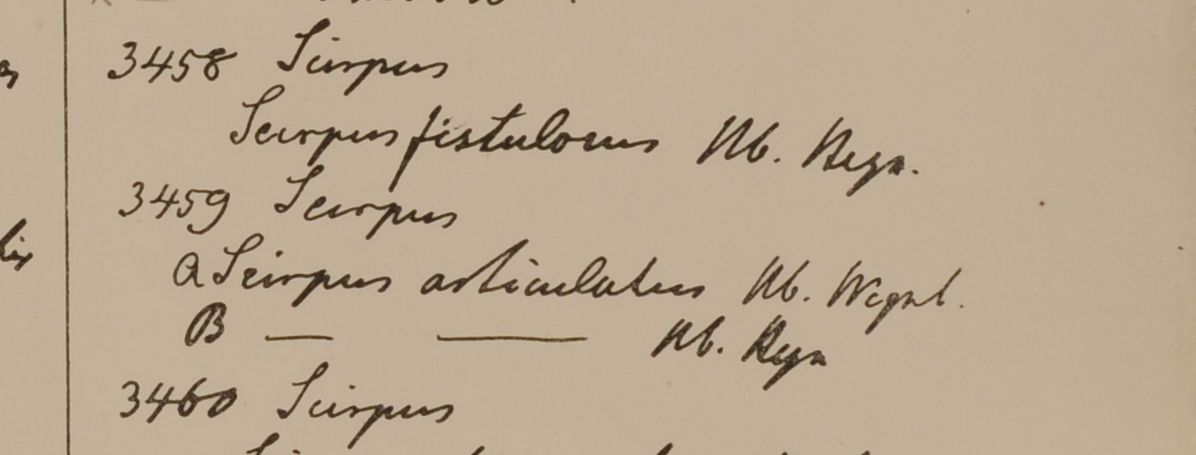 3458 Scirpus
Scirpus fistulosus Hb. Heyn.
3459 Scirpus
a Scirpus articulatus Hb. Wight.
B — — Hb. Heyn
3460 Scirpus